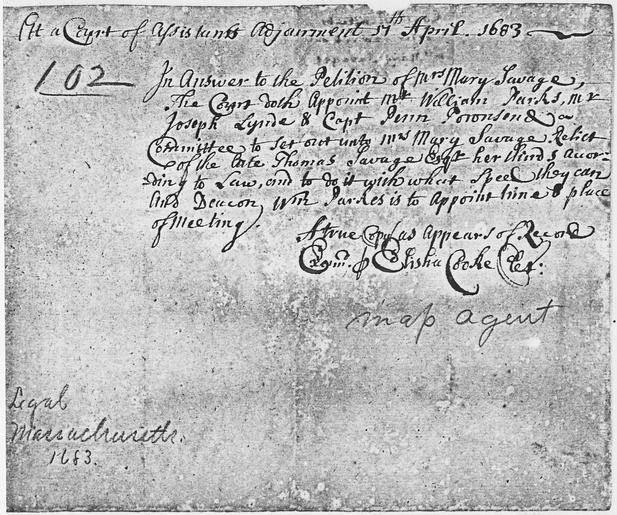 Att a Court of Assistants Adjournment 17th April. 1683
102
In Answer to the Petition of Mrs Mary Savage,
The Court doth Appoint mr William Parks, mr
Joseph Lynde & Capt Penn Townsend a
Committee to set out unto Mrs Mary Savage Relict
of the late Thomas Savage Esqr her thirds Accor-
ding to Law, and to do it with what speed they can
And Deacon Wm Parkes is to Appoint time & place
of Meeting.
A true Copy as Appears of Record
Exam. p Elisha Cooke Cler:
map agent
Legal
Massachusetts.
1683.